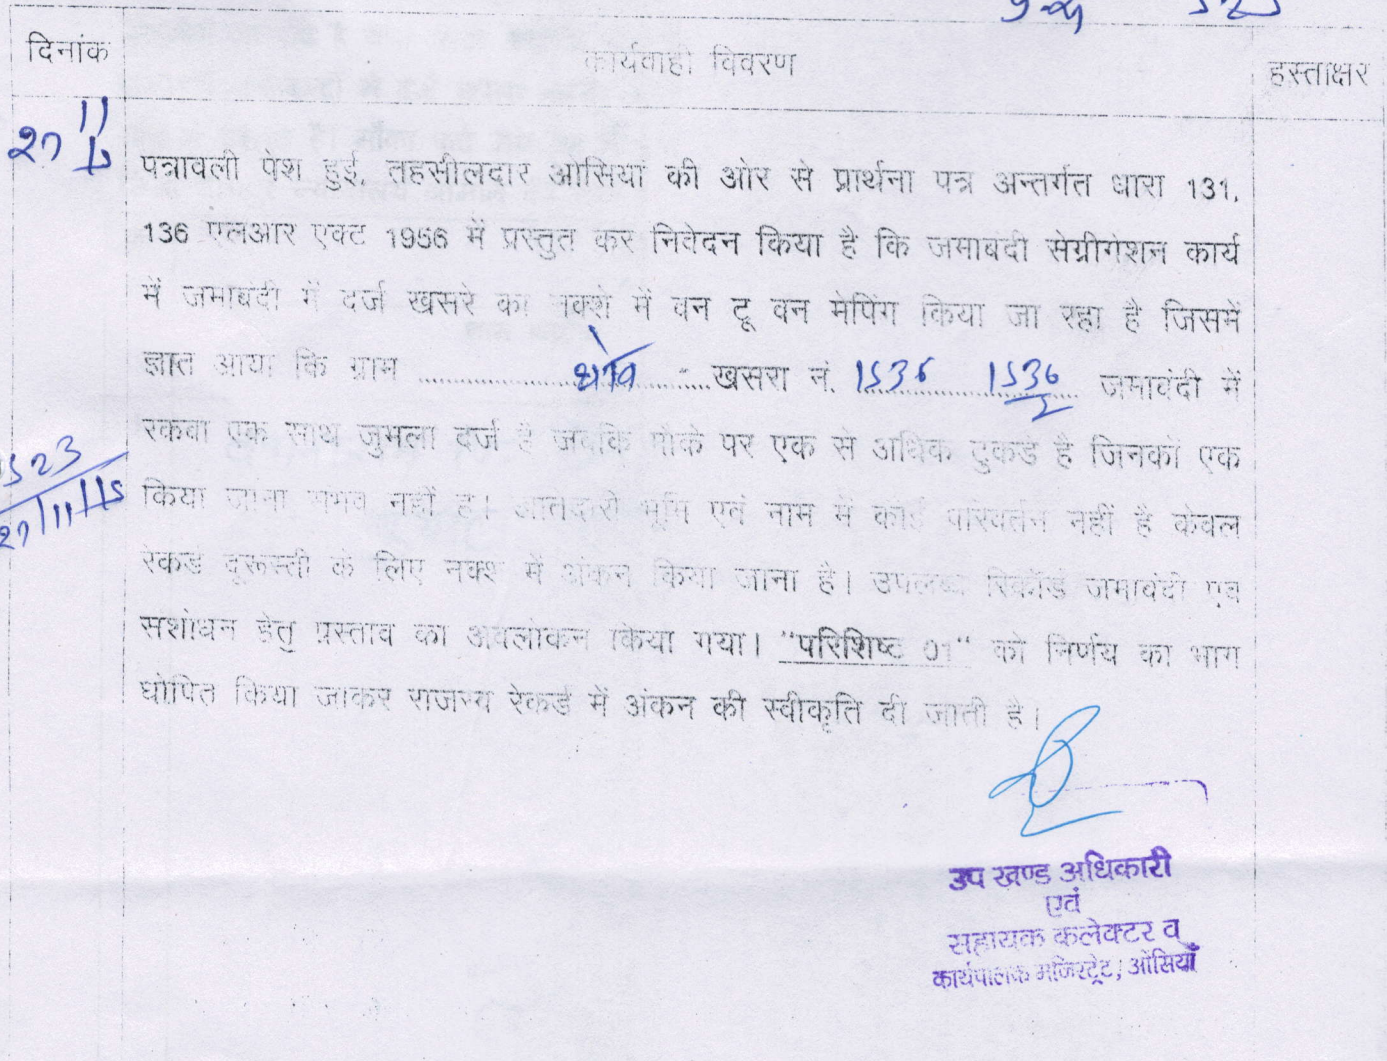 दिनांक कार्यवाही विवरण हस्ताक्षर
27 11
पत्रावली पेश हुई, तहसीलदार ओसियां की ओर से प्रार्थना पत्र अन्तर्गत धारा 131,
136 एलआर एक्ट 1956 में प्रस्तुत कर निवेदन किया है कि जमाबंदी सेग्रीगेशन कार्य
में जमाबंदी में दर्ज खसरे का नक्शे में वन टू वन मेपिंग किया जा रहा है जिसमें
ज्ञात आया कि ग्राम .................... खसरा नं. 1536 1536/2 जमाबंदी में
रकबा एक साथ जुमला दर्ज है जबकि मौके पर एक से अधिक टुकडे है जिनको एक
1523
27/11/15
किया जाना संभव नहीं है। खातेदारी भूमि एवं नाम में कोई परिवर्तन नहीं है केवल
रेकर्ड दुरूस्ती के लिए नक्शे में अंकन किया जाना है। उपलब्ध रिकॉर्ड जमाबंदी एवं
संशोधन हेतु प्रस्ताव का अवलोकन किया गया। "परिशिष्ट 01" को निर्णय का भाग
घोषित किया जाकर राजस्व रेकर्ड में अंकन की स्वीकृति दी जाती है।
उप खण्ड अधिकारी
एवं
सहायक कलेक्टर व
कार्यपालक मजिस्ट्रेट, ओसियाँ